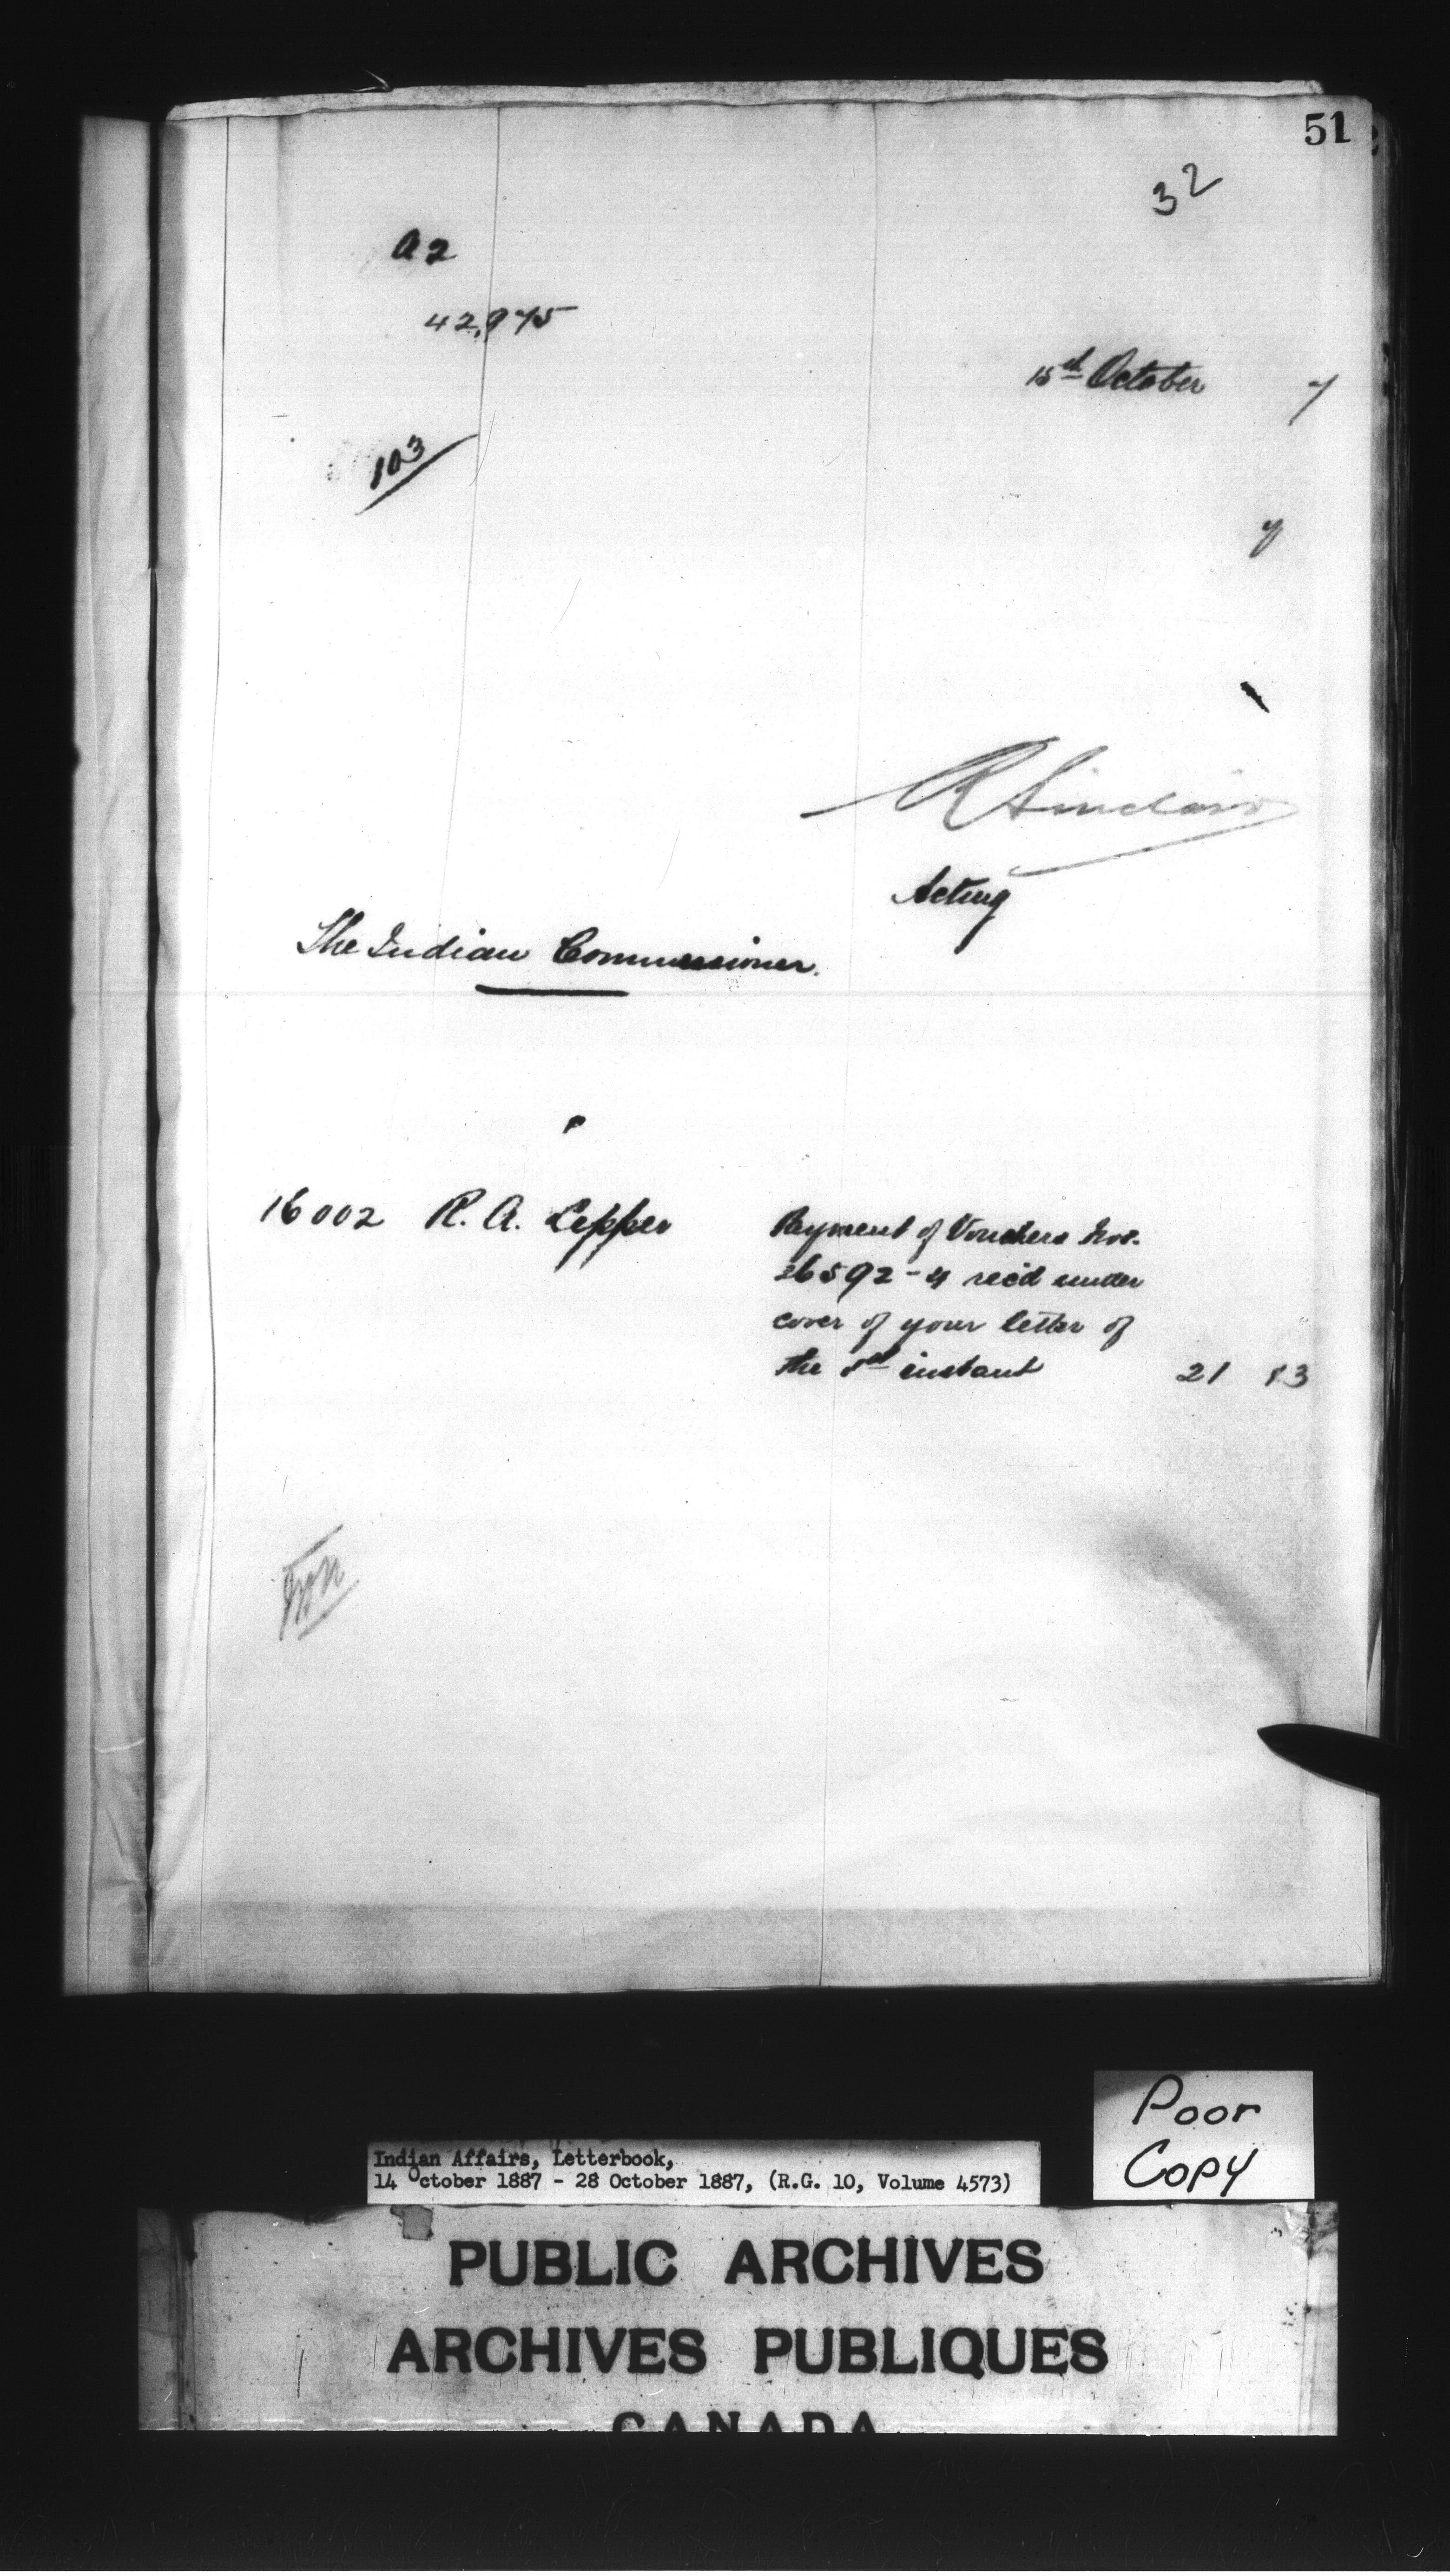 51
32
A 2
42,975
15th October 7
103
y
R Sinclair
Acting
The Indian Commissioner.
16002 R. A. Lepper
Payment of Vouchers Nos.
36592-4 rec'd under
cover of your letter of
the 8th instant 21 83
Poor
Copy
Indian Affairs, Letterbook,
14 October 1887 - 28 October 1887, (R.G. 10, Volume 4573)
PUBLIC ARCHIVES
ARCHIVES PUBLIQUES
CANADA